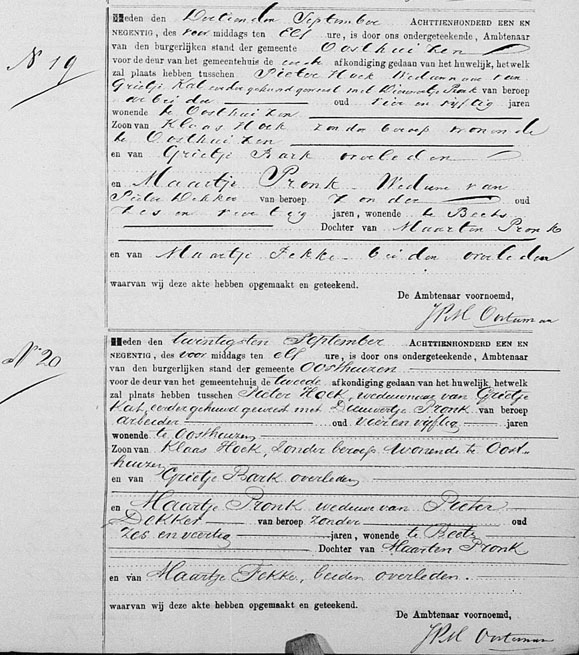 No 19
Heden den Dertienden September ACHTTIENHONDERD EEN EN
NEGENTIG, des voor middags ten Elf ure, is door ons ondergeteekende, Ambtenaar
van den burgerlijken stand der gemeente Oosthuizen
voor de deur van het gemeentehuis de eerste afkondiging gedaan van het huwelijk, hetwelk
zal plaats hebben tusschen Pieter Hoek Weduwnaar van
Grietje Kat eerder gehuwd geweest met Dieuwertje Pronk van beroep
arbeider oud vier en vijftig jaren
wonende te Oosthuizen
Zoon van Klaas Hoek zonder beroep wonende
te Oosthuizen
en van Grietje Bark overleden
en Maartje Pronk Weduwe van
Pieter Dekker van beroep zonder oud
zes en veertig jaren, wonende te Beets
Dochter van Maarten Pronk
en van Maartje Fekke beiden overleden
waarvan wij deze akte hebben opgemaakt en geteekend.
De Ambtenaar voornoemd,
No 20
Heden den twintigsten September ACHTTIENHONDERD EEN EN
NEGENTIG, des voor middags ten elf ure, is door ons ondergeteekende, Ambtenaar
van den burgerlijken stand der gemeente Oosthuizen
voor de deur van het gemeentehuis de tweede afkondiging gedaan van het huwelijk, hetwelk
zal plaats hebben tusschen Pieter Hoek, weduwnaar van Grietje
Kat, eerder gehuwd geweest met Dieuwertje Pronk van beroep
arbeider oud vier en vijftig jaren
wonende te Oosthuizen
Zoon van Klaas Hoek, zonder beroep wonende te Oost-
huizen
en van Grietje Bark overleden
en Maartje Pronk weduwe van Pieter
Dekker van beroep zonder oud
zes en veertig jaren, wonende te Beets
Dochter van Maarten Pronk
en van Maartje Fekke, beiden overleden.
waarvan wij deze akte hebben opgemaakt en geteekend.
De Ambtenaar voornoemd,